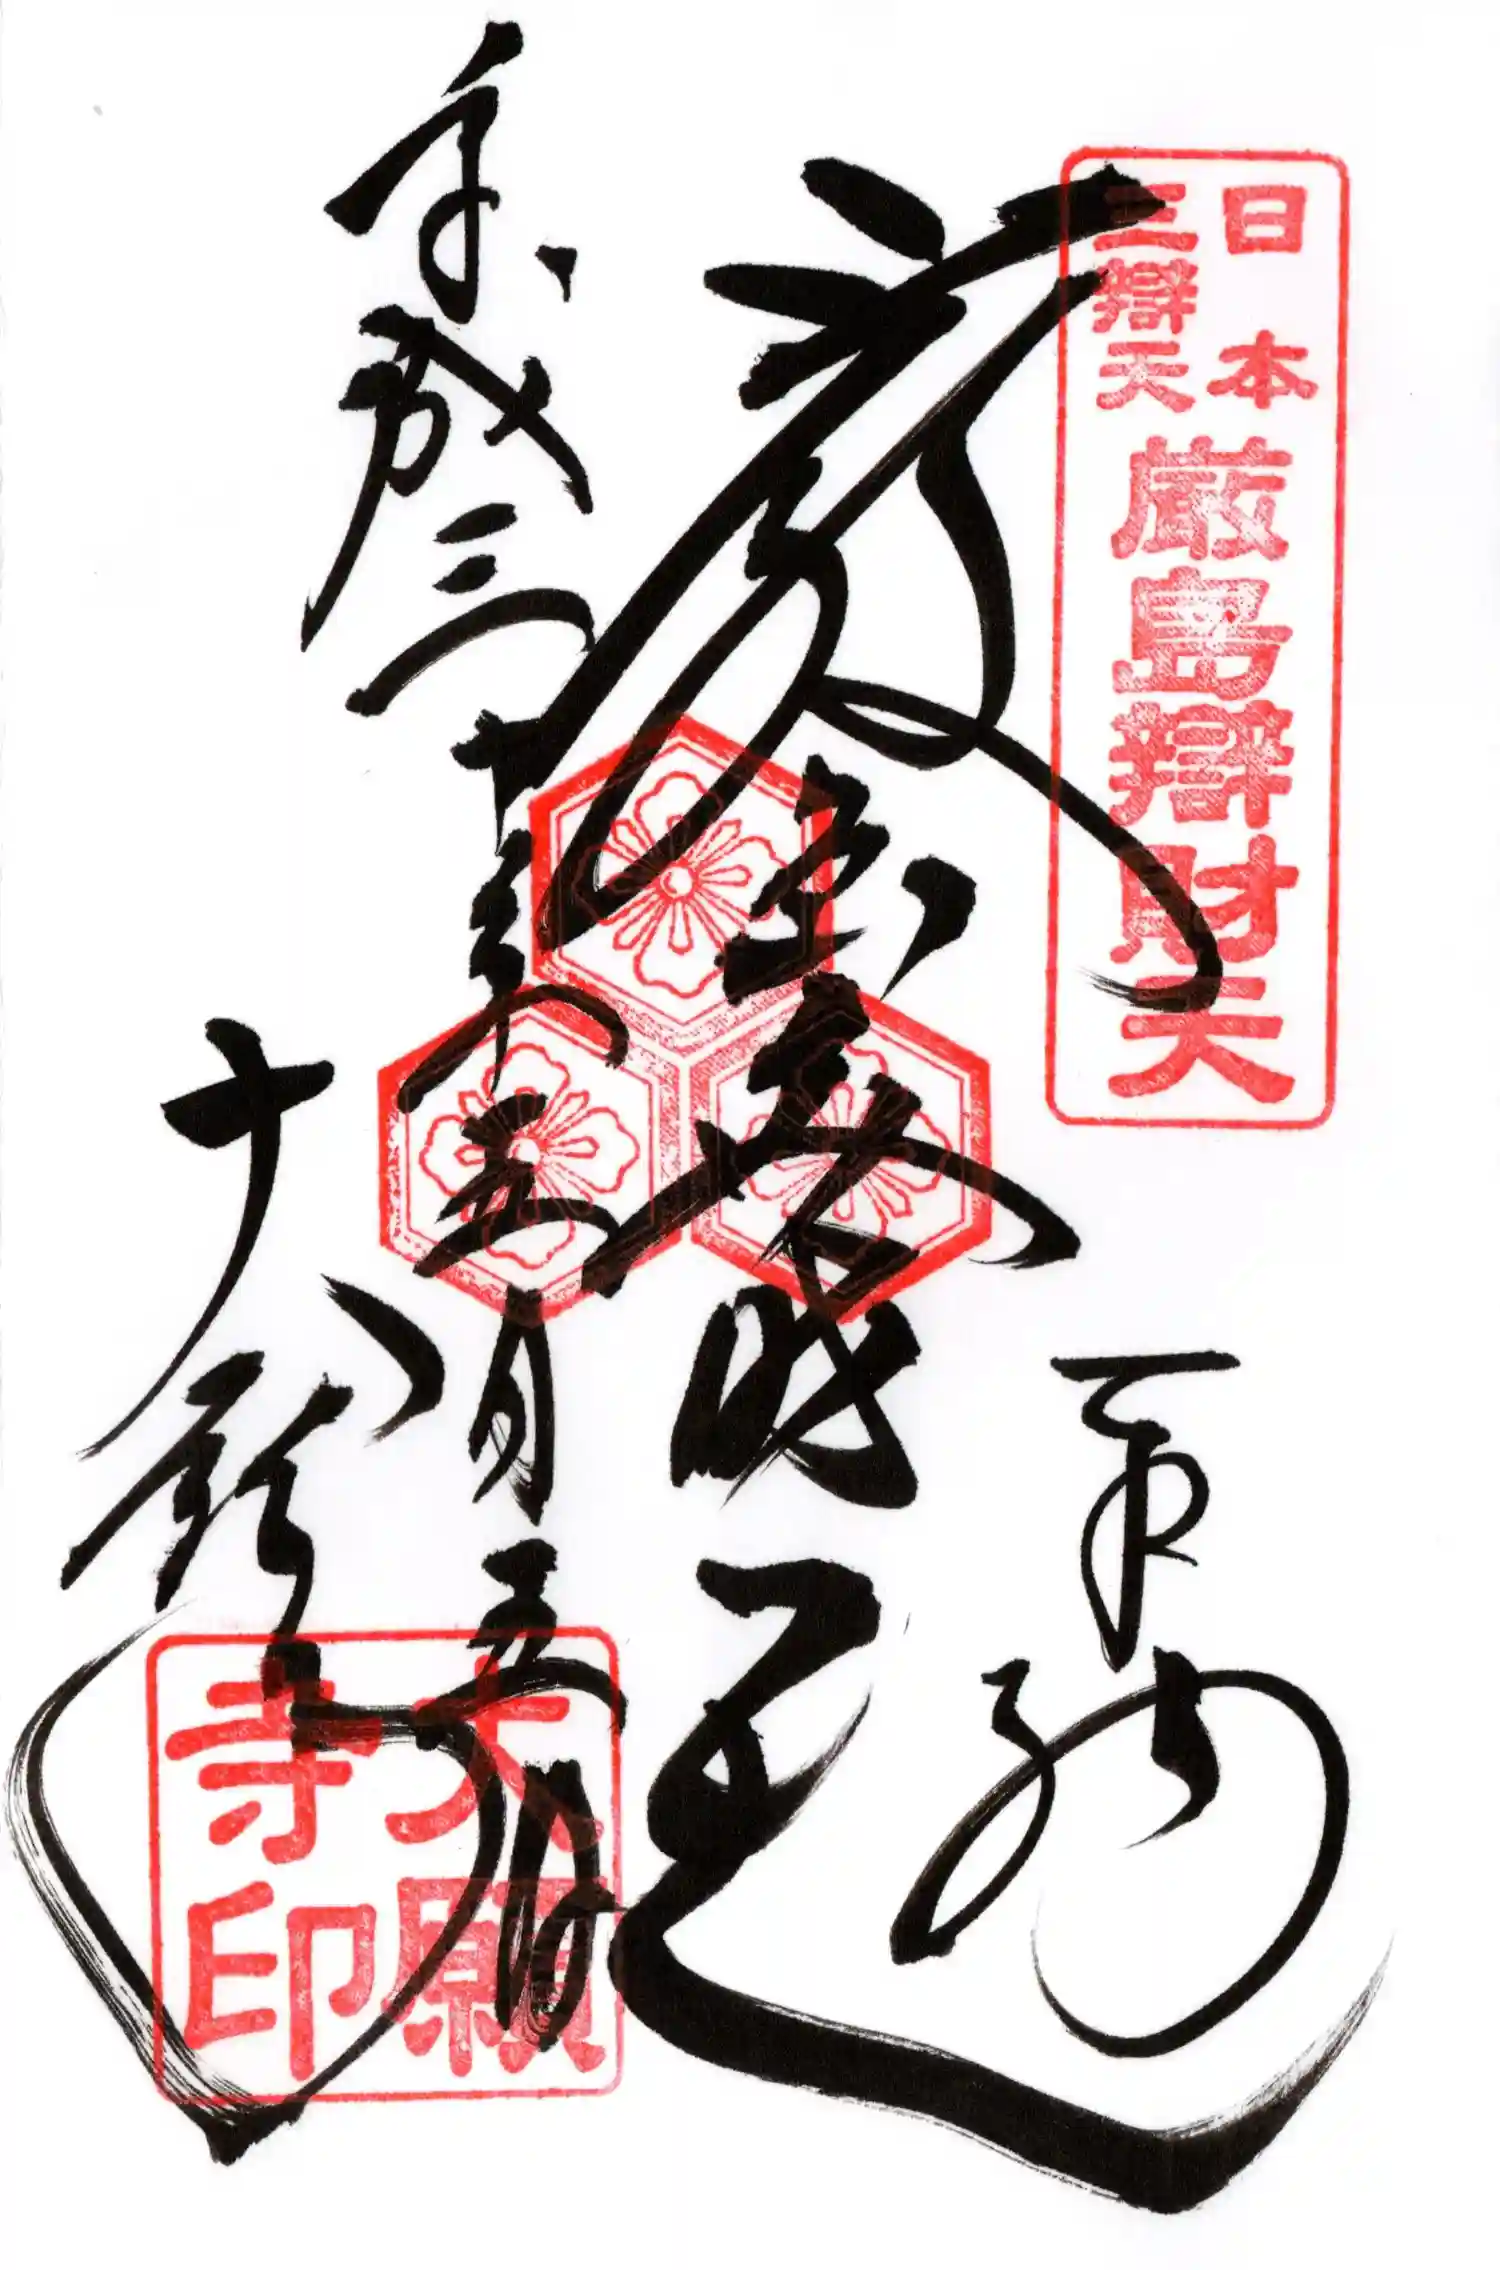 日本
三辯天
厳島辯財天
厳島
天
平成三十年五月五日
大願寺
大願
寺印